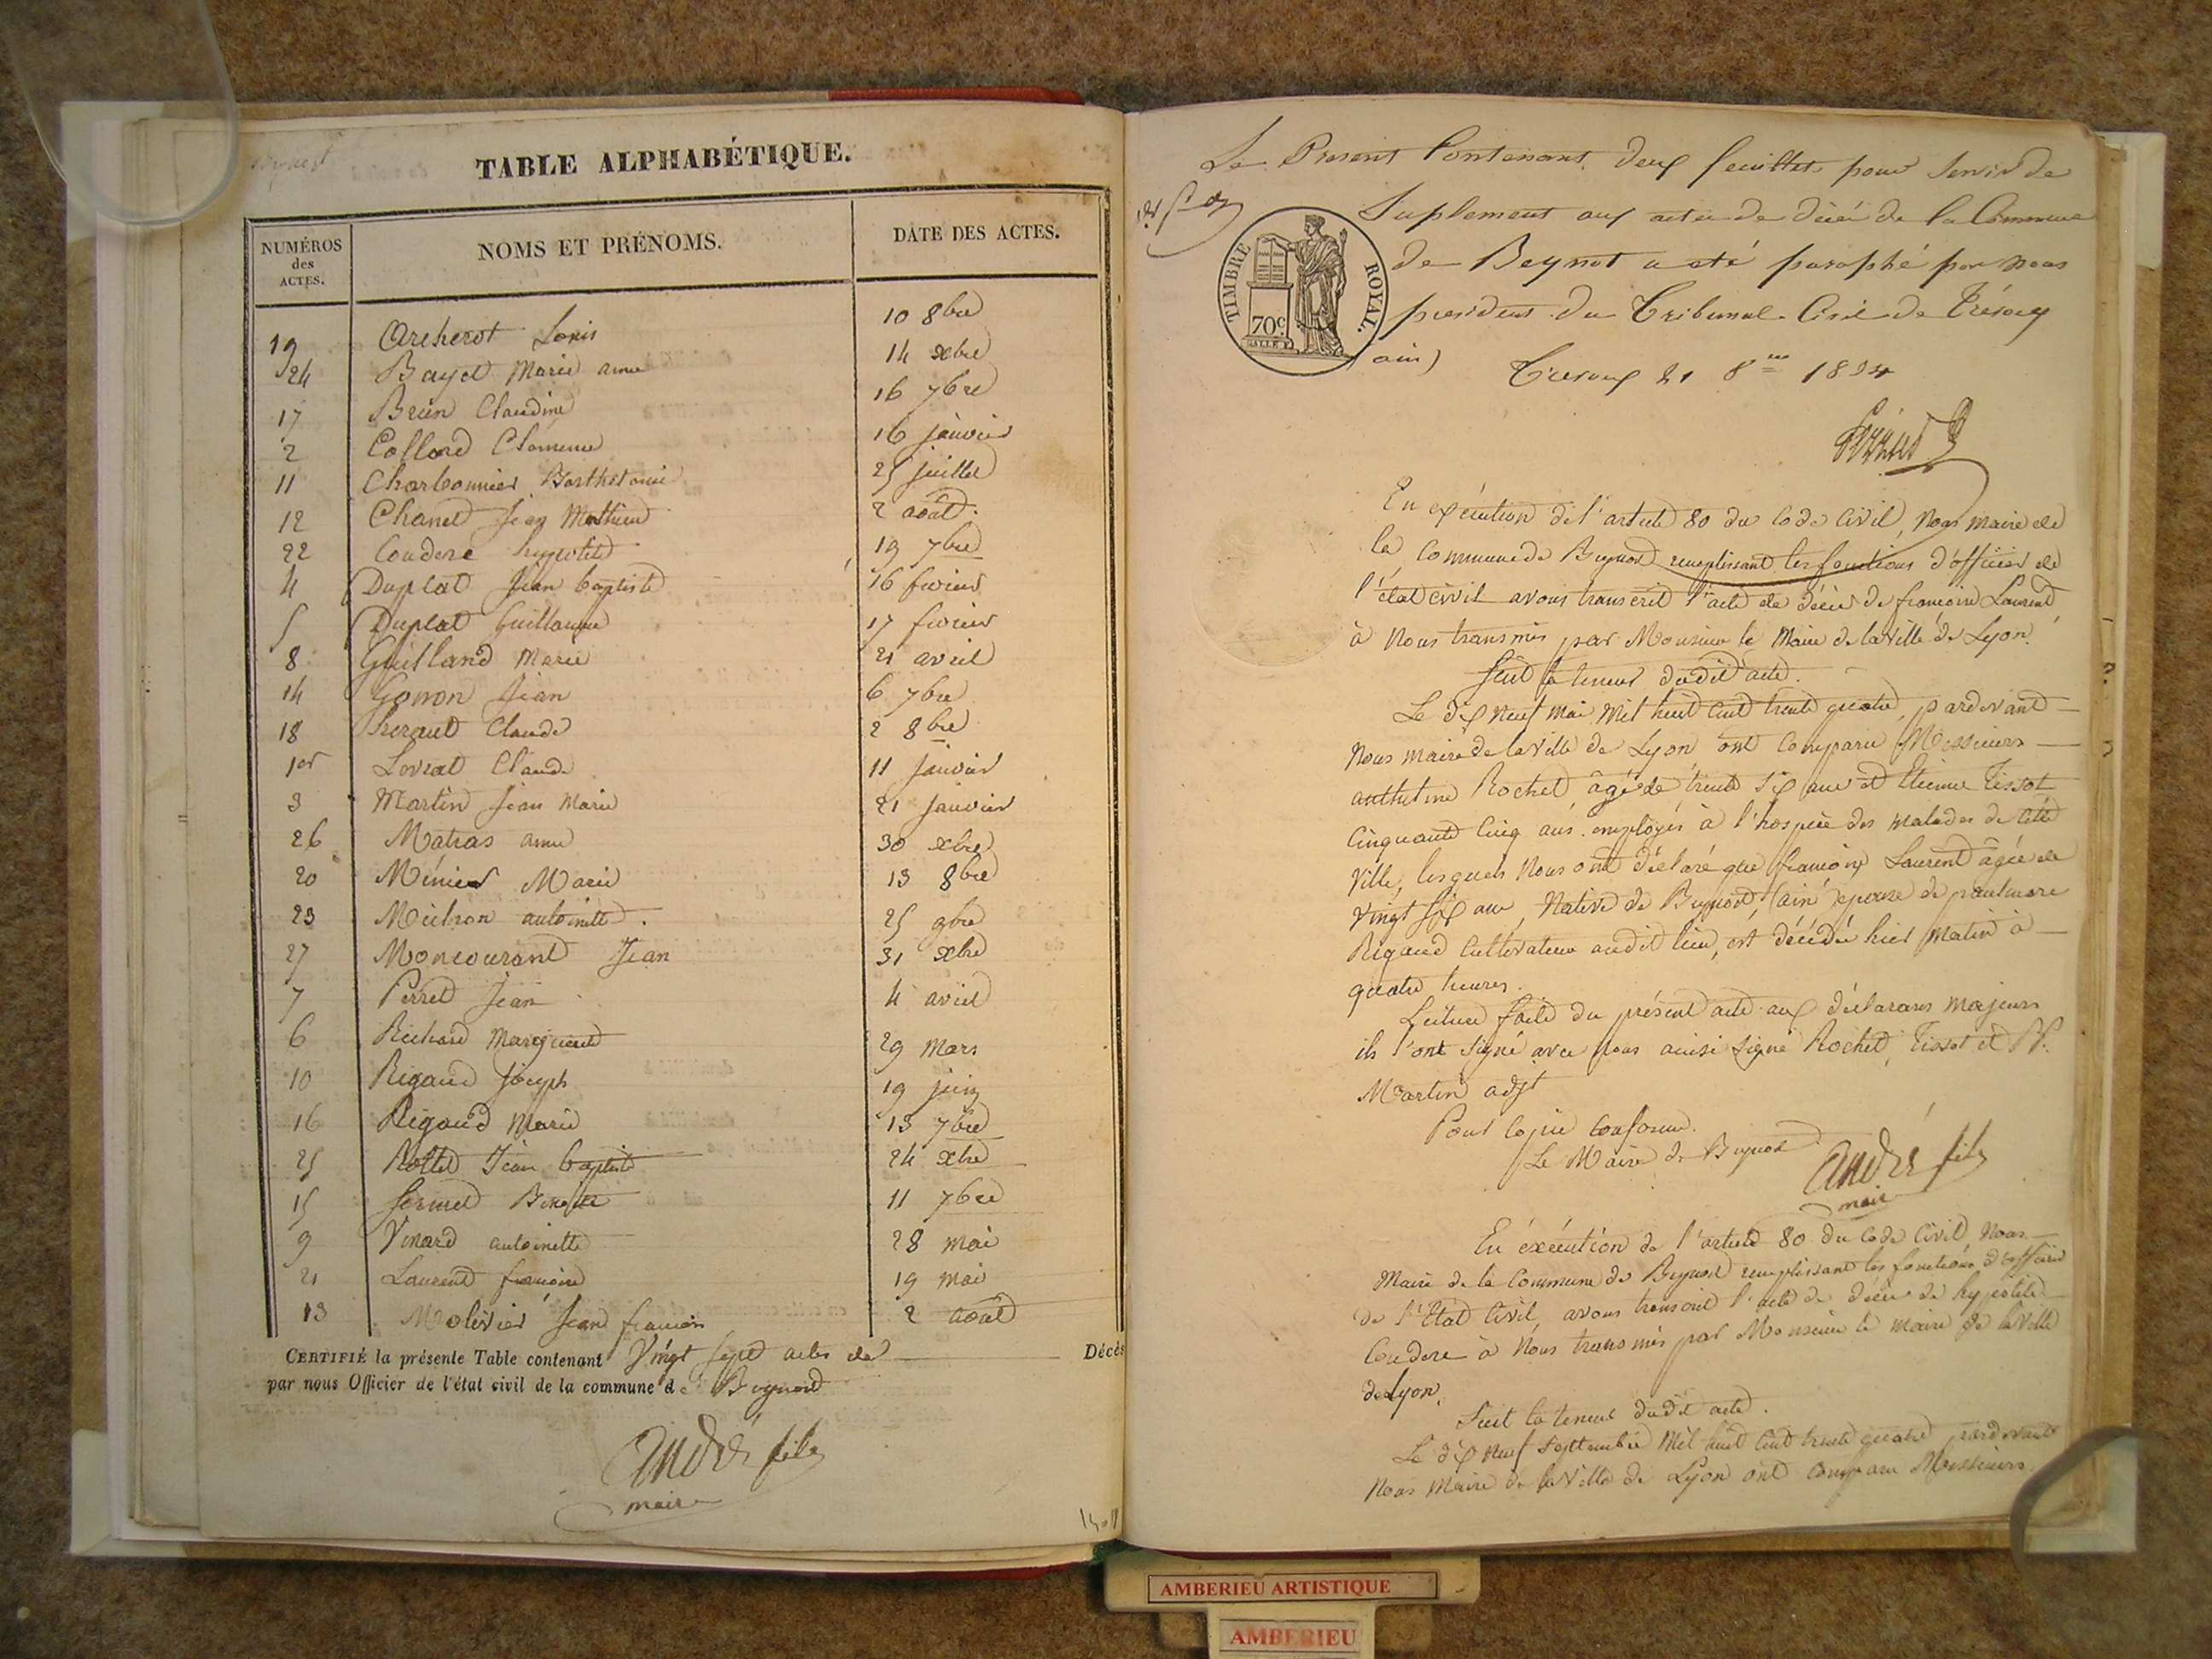 TABLE ALPHABÉTIQUE.
NUMÉROS des ACTES. NOMS ET PRÉNOMS. DATE DES ACTES.
19 Archerot Louis 10 8bre
24 Bayet Marie anne 14 xbre
17 Brun Claudine 16 7bre
2 Collard 16 janvier
11 Charbonnier 25 juillet
12 Chanel Jean Mathieu 2 août.
22 Coudere hypolite 19 7bre
4 Duplat Jean baptiste 16 fevrier
5 Duplat Guillaume 17 fevrier
8 Guilland Marie 21 avril
14 Gonon Jean 6 7bre
18 Claude 2 8bre
1er Lovrat Claude 11 janvier
3 Martin Jean Marie 21 janvier
26 Matras anne 30 xbre
20 Ménier Marie 13 8bre
23 antoinette. 25 9bre
27 Moncourant Jean 31 xbre
7 Perret Jean 4 avril
6 Richard Marguerite 29 Mars
10 Rigaud Joseph 19 juin
16 Rigaud Marie 13 7bre
25 Rollet Jean baptiste 24 xbre
15 11 7bre
9 Vinard antoinette 28 mai
21 Laurent françoise 19 mai
13 Molivier Jean françois 2 août
CERTIFIÉ la présente Table contenant Vingt sept actes de Décès
par nous Officier de l'état civil de la commune de Beynost
André fils
maire
Le Present Contenant deux feuillets pour servir de
Suplement aux actes de décè de la Commune
de Beynot a eté paraphé par nous
président du Tribunal Civil de Trévoux
(ain)
TIMBRE ROYAL.
70c
Trevoux 21 8bre 1834
En exécution de l'article 80 du Code Civil, Nous Maire de
la Commune de Beynost remplissant les fonctions d'officier de
l'état civil avons transcrit l'acte de décès de françoise Laurent,
à Nous transmis par Monsieur le Maire de la Ville de Lyon.
Suit la teneur dudit acte.
Le dix Neuf Mai Mil huit cent trente quatre, pardevant
Nous maire de la Ville de Lyon ont comparu Messieurs
Rochet, âgé de trente Six ans et Etienne Tissot
Cinquante Cinq ans. employés à l'hospice des malades de cette
Ville, lesquels Nous ont déclaré que françoise Laurent âgée de
Vingt six ans, Native de Beynost, (ain) epouse de
Rigaud Cultivateur audit lieu, est décédée hier matin à
quatre heures.
Lecture faite du présent acte aux déclarans majeurs
ils l'ont signé avec Nous ainsi signé Rochet, Tissot et
Martin adjt
Pour Copie Conforme.
Le Maire de Beynost
André fils
maire
En éxécution de l'article 80 du Code Civil, Nous
Maire de la Commune de Beynost remplissant les fonctions d'officier
de l'Etat Civil, avons transcrit l'acte de décès de hypolite
Coudere à Nous transmis par Monsieur le maire de la Ville
de Lyon.
Suit la teneur dudit acte.
Le dix Neuf Septembre Mil huit Cent trente quatre pardevant
Nous Maire de la Ville de Lyon ont Comparu Messieurs
AMBERIEU ARTISTIQUE
AMBERIEU